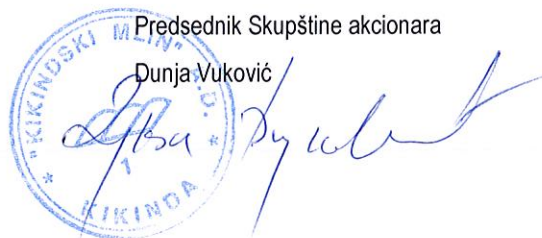 Predsednik Skupštine akcionara
Dunja Vuković
"KIKINDSKI MLIN" A.D.
1
KIKINDA